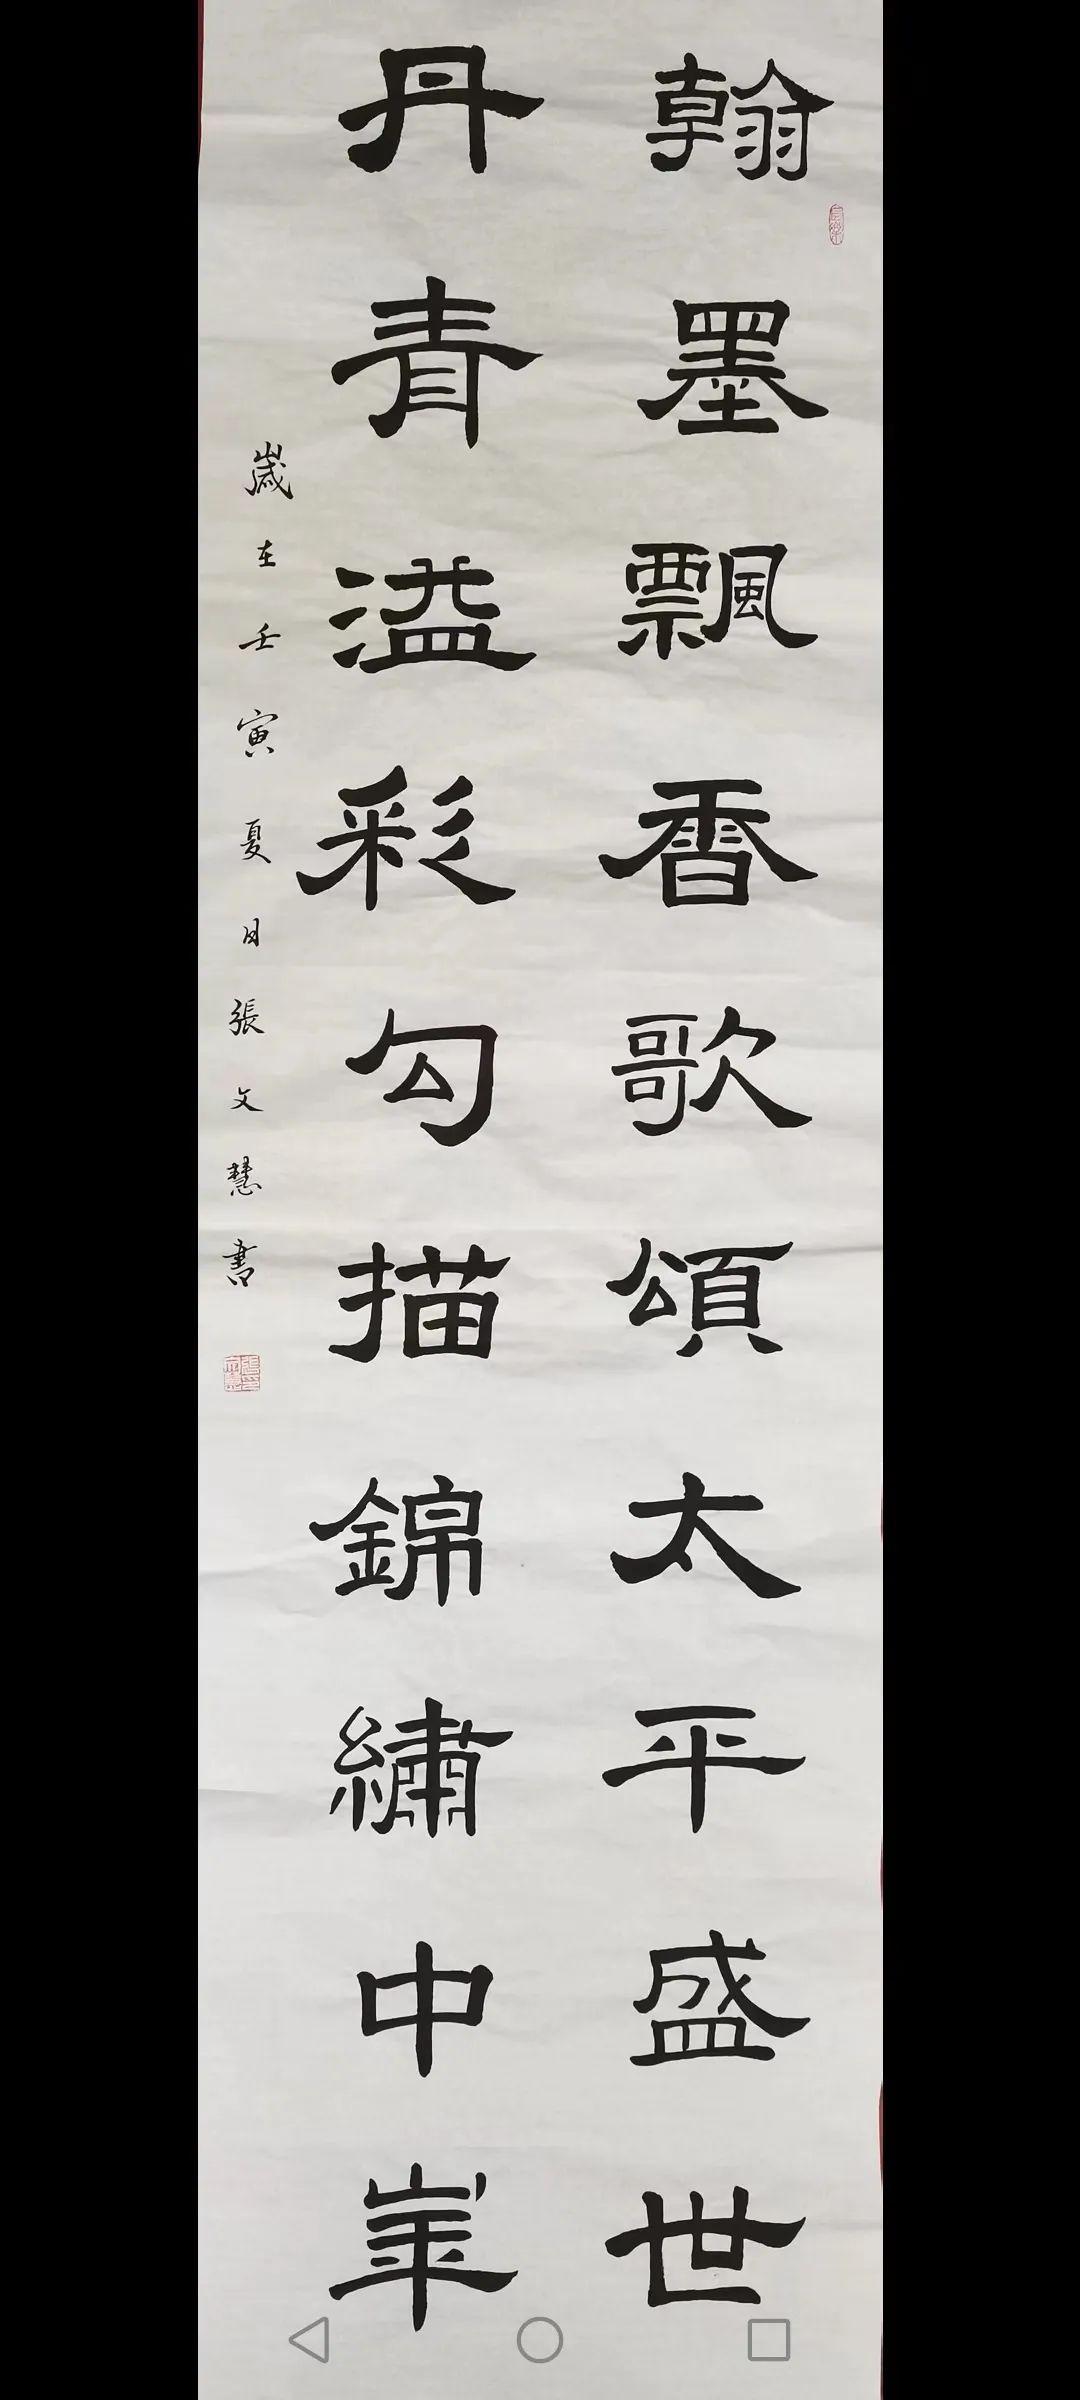 翰墨飄香歌頌太平盛世
丹青溢彩勾描錦繡中華
歲在壬寅夏日張文慧書